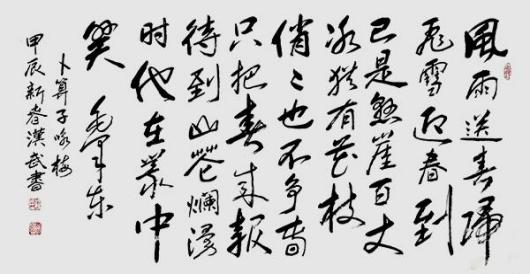 風雨送春歸
飛雪迎春到
已是悬崖百丈
冰猶有花枝
俏〻也不争春
只把春来報
待到山花爛漫
时代在叢中
笑 毛泽东
卜算子咏梅
甲辰新春漢武書